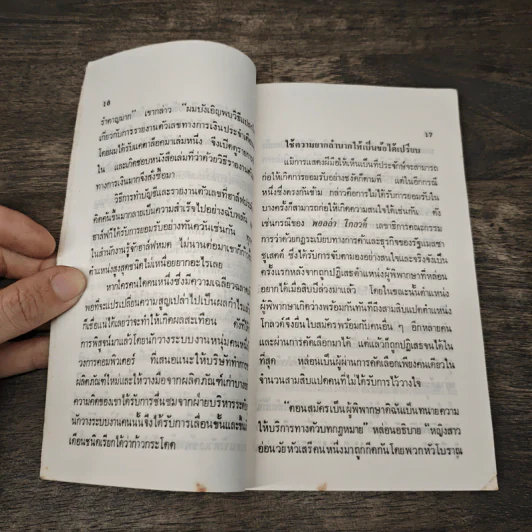 16
รำคาญมาก" เขากล่าว "ผมบังเอิญพบวิธีใหม่
เกี่ยวกับการรายงานตัวเลขทางการเงินประจำ
โดยผมได้รับแคตาล็อคมาเล่มหนึ่ง จึงเปิดดูรายการ
ใน และเกิดชอบหนังสือเล่มที่ว่าด้วยวิธีรายงาน
ทางการเงินมากจึงสั่งซื้อมา
วิธีการทำบัญชีและรายงานตัวเลขที่ฮาล์ฟ
คิดค้นขึ้นมากลายเป็นความสำเร็จไปอย่างฉับพลัน
ฮาล์ฟได้รับการยอมรับอย่างทันควันเช่นกัน
ในสำนักงานรู้จักฮาล์ฟหมด ไม่นานต่อมาเขาก็
ตำแหน่งสูงสุดชนิดไม่เหนื่อยยากอะไรเลย
หากใครคนใดคนหนึ่งซึ่งมีความเฉลียวฉลาด
พอที่จะแปรเปลี่ยนความสูญเปล่าไปเป็นผลกำไร
ก็เชื่อแน่ได้เลยว่าจะทำให้เกิดผลสะเทือน ดังที่ได้
การพิสูจน์มาแล้วโดยนักวางระบบงานหนุ่มคน
วงการคอมพิวเตอร์ ที่เสนอแนะให้บริษัททำการ
ผลิตภัณฑ์ใหม่และให้วางมือจากผลิตภัณฑ์เก่า
ความคิดของเขาได้รับการชื่นชมจากฝ่ายบริหารระดับ
นักวางระบบงานคนนั้นจึงได้รับการเลื่อนขั้นและขึ้นเงิน
เดือนชนิดเรียกได้ว่าก้าวกระโดด
17
ใช้ความยากลำบากให้เป็นข้อได้เปรียบ
แม้การแสดงฝีมือให้เห็นเป็นที่ประจักษ์จะสามารถ
ก่อให้เกิดการยอมรับอย่างชงัดก็ตามที แต่ในอีกกรณี
หนึ่งซึ่งตรงกันข้าม กล่าวคือการไม่ได้รับการยอมรับใน
บางครั้งก็สามารถก่อให้เกิดความสนใจได้เช่นกัน ดัง
เช่นกรณีของ พอลล่า โกลวติ์ เลขาธิการคณะกรรม
การว่าด้วยกฎระเบียบทางการค้าและธุรกิจของรัฐแมสซา
ชูเสตต์ ซึ่งได้รับการจับตามองอย่างสนใจและจริงจังเป็น
ครั้งแรกหลังจากถูกปฏิเสธตำแหน่งผู้พิพากษาที่หล่อน
อยากได้เมื่อสิบปีล่วงมาแล้ว โดยในขณะนั้นตำแหน่ง
ผู้พิพากษาเกิดว่างพร้อมกันทันทีถึงสามสิบแปดตำแหน่ง
โกลวติ์จึงยื่นใบสมัครพร้อมกับคนอื่น ๆ อีกหลายคน
และผ่านการคัดเลือกมาได้ แต่แล้วก็ถูกปฏิเสธจนได้ใน
ที่สุด หล่อนเป็นผู้ผ่านการคัดเลือกเพียงคนเดียวใน
จำนวนสามสิบแปดคนที่ไม่ได้รับการไว้วางใจ
"ตอนสมัครเป็นผู้พิพากษาดิฉันเป็นทนายความ
ให้บริการทางตัวบทกฎหมาย" หล่อนอธิบาย "หญิงสาว
อ่อนวัยหัวเสรีคนหนึ่งมาถูกกีดกันโดยพวกหัวโบราณ